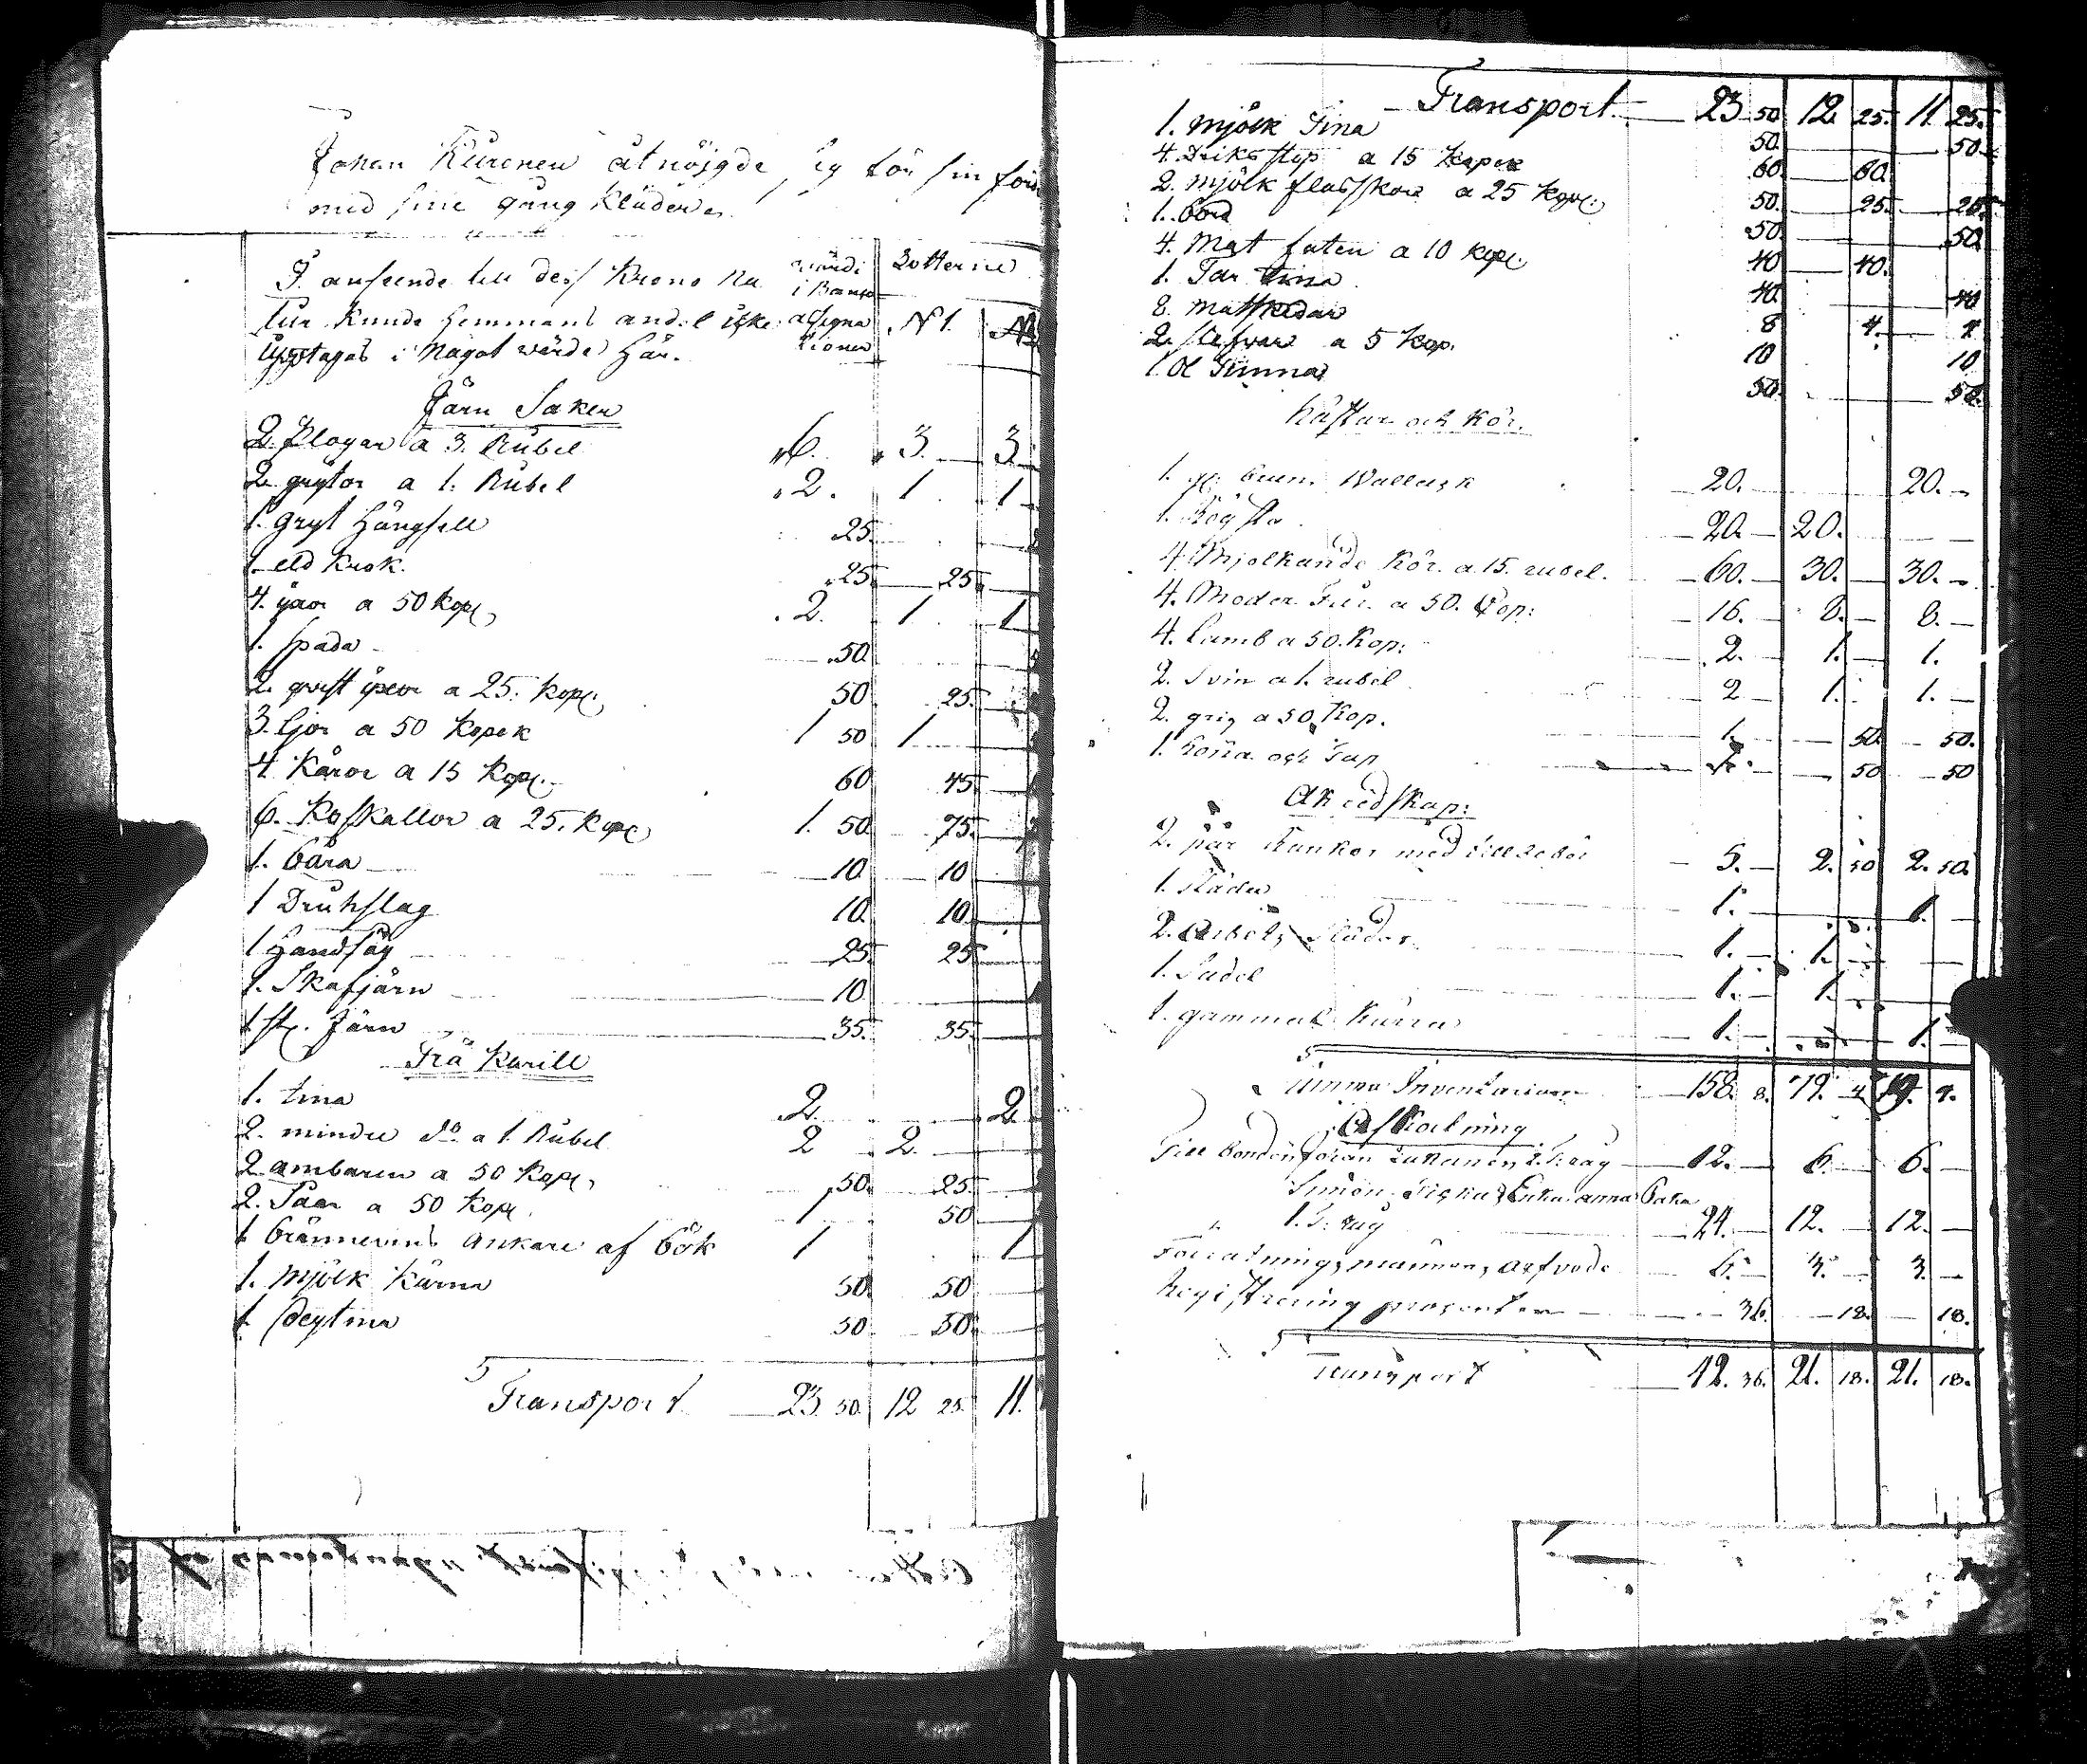 Johan Kürenen åtnöjgde sig för sin förd
med sine gång kläder
I anseende till dess Krono Na wärdi Lotterne
tur kunde hemmans andel icke i Banco
assigna N 1. No
upptagas i något wärde här. tioner
Järn Saker
2. plogar a 3. Rubel 6. 3. 3
2 grytor a 1. Rubel 2. 1 1
1. gryt hängsell 25.
1. eld krok. 25. 25.
4. yxor a 50 kope 2. 1 1
1. spada 50.
2. a 25. kope 50. 25.
3. ljor a 50 kopek 1 50 1
4. kåror a 15 kope. 60 45
6. koskallor a 25. kope 1. 50. 75.
1. bära 10. 10
1 Druhslag 10. 10.
1 Handsåg 25. 25
1. Skafjärn 10
1 st. Järn 35. 35.
Trä Kärill
1. tina 2. 2
2. mindre do a 1. Rubel 2 2.
2 ambaren a 50 kope, 50. 25.
2. Såar a 50 kope 1 50
1 brännevins ankare af bök 1 1
1. mjölk kärna 50. 50
1. deytina 50. 50.
Transport 23. 50. 12 25. 11.
Transport 23 50 12. 25. 11 25.
1. mjölk tina 50. 50
4. Driks stop a 15 kopek 60 60
2. mjölk flasskor a 25 kope: 50. 25. 25
1. bord 50. 50
4. Mat faten a 10 kope. 40 40.
1. Tar tina 40. 40
8. matskedar 8 4. 4
2. slefvar a 5 kop. 10 10
1. öl 50. 50.
hästar och kör.
1. brun Wallack 20. 20.
1. 20. 20.
4. Mjolkande kör. a 15. rubel. 60. 30. 30.
4. Moder Får. a 50. kop: 16. 8. 8.
4. lamb a 50. kop: 2. 1. 1.
2. Svin a 1. rubel 2 1. 1.
2. gris a 50. kop. 1. 50. 50.
1. höna och tup 50 50
Åk redskap:
2. pär med tillbehör 5. 2. 50 2. 50.
1. släde 1. 1.
2. arbets slädor 1. 1.
1. Sadel 1. 1.
1. gammal kärra 1. 1.
Summa Inventarium 158. 8. 79. 4 79. 4.
Afkortning
Till bonden Johan råg 12. 6. 6.
Simon Anna
1. T: råg 24. 12. 12.
Förrätningsmannens arfvode 6. 3. 3.
Registrering procenten 36. 18. 18.
Transport 42. 36. 21. 18. 21. 18.